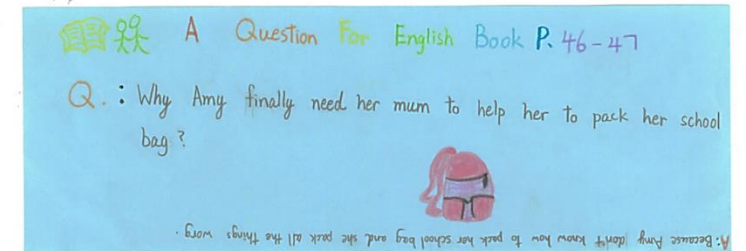 A Question For English Book P. 46-47
Q.: Why Amy finally need her mum to help her to pack her school
bag?
A: Because Amy don't know how to pack her school bag and she pack all the things worng.